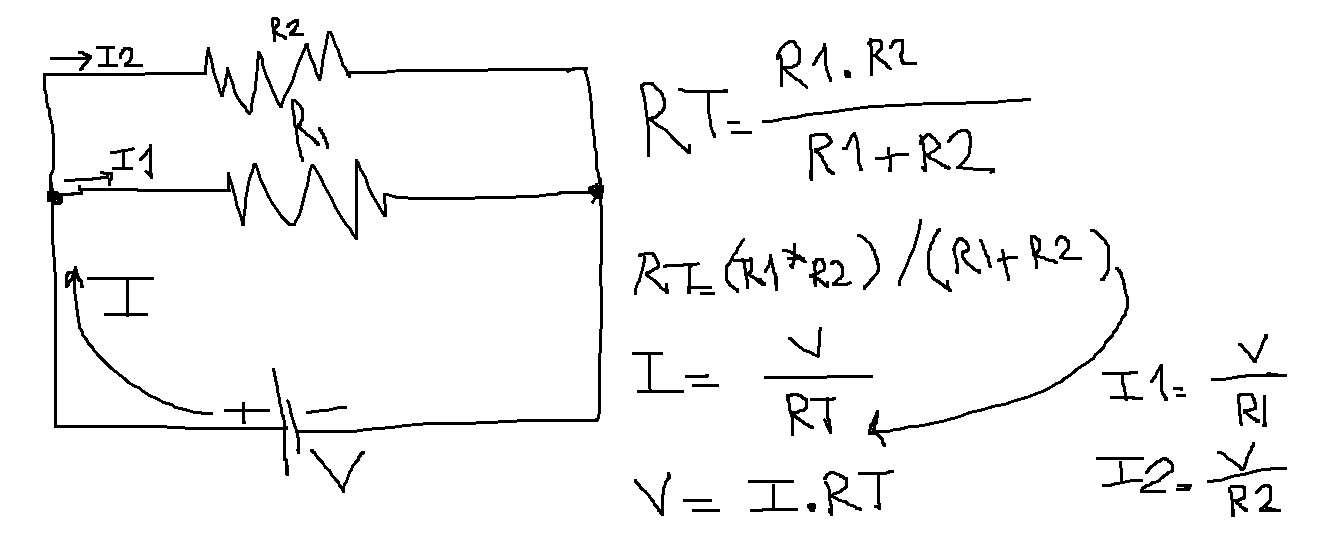 R2
I2
R1
I1
I
+ -
V
RT= R1.R2
R1+R2
RT=(R1*R2)/(R1+R2)
I= V
RT
V= I.RT
I1= V
R1
I2= V
R2